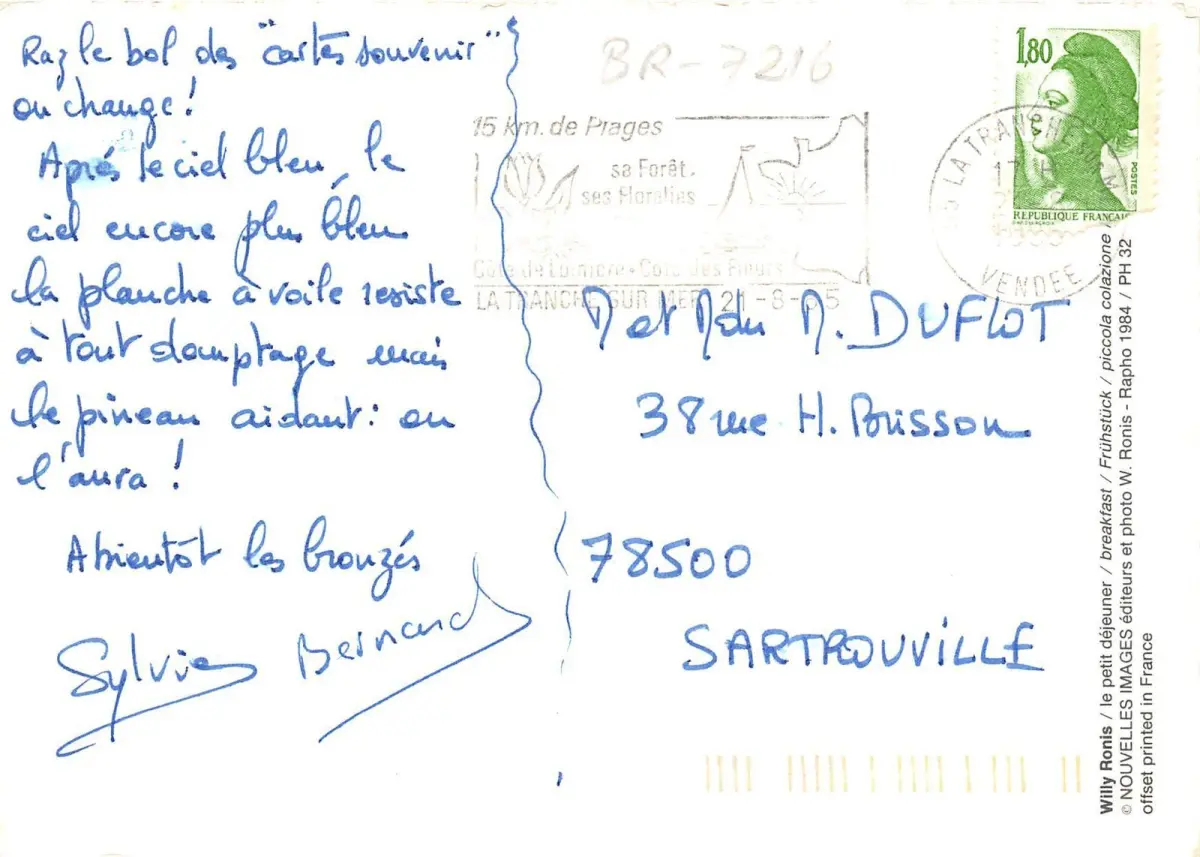 Raz le bol des "cartes souvenir"
on change!
Après le ciel bleu, le
ciel encore plus bleu
la planche à voile resiste
à tout domptage mais
le pineau aidant: on
l'aura!
A bientôt les bronzés
Sylvie Bernard
BR-7216
15 km. de Plages
sa Forêt.
ses Floralies
Côte de Lumière - Côte des Fleurs
LA TRANCHE SUR MER 21-8-85
1,80
POSTES
REPUBLIQUE FRANÇAI
LA TRANCHE
17 H
VENDEE
M et Mdm M. DUFLOT
38 rue H. Brisson
78500
SARTROUVILLE
Willy Ronis / le petit déjeuner / breakfast / Frühstück / piccola colazione /
© NOUVELLES IMAGES éditeurs et photo W. Ronis - Rapho 1984 / PH 32
offset printed in France